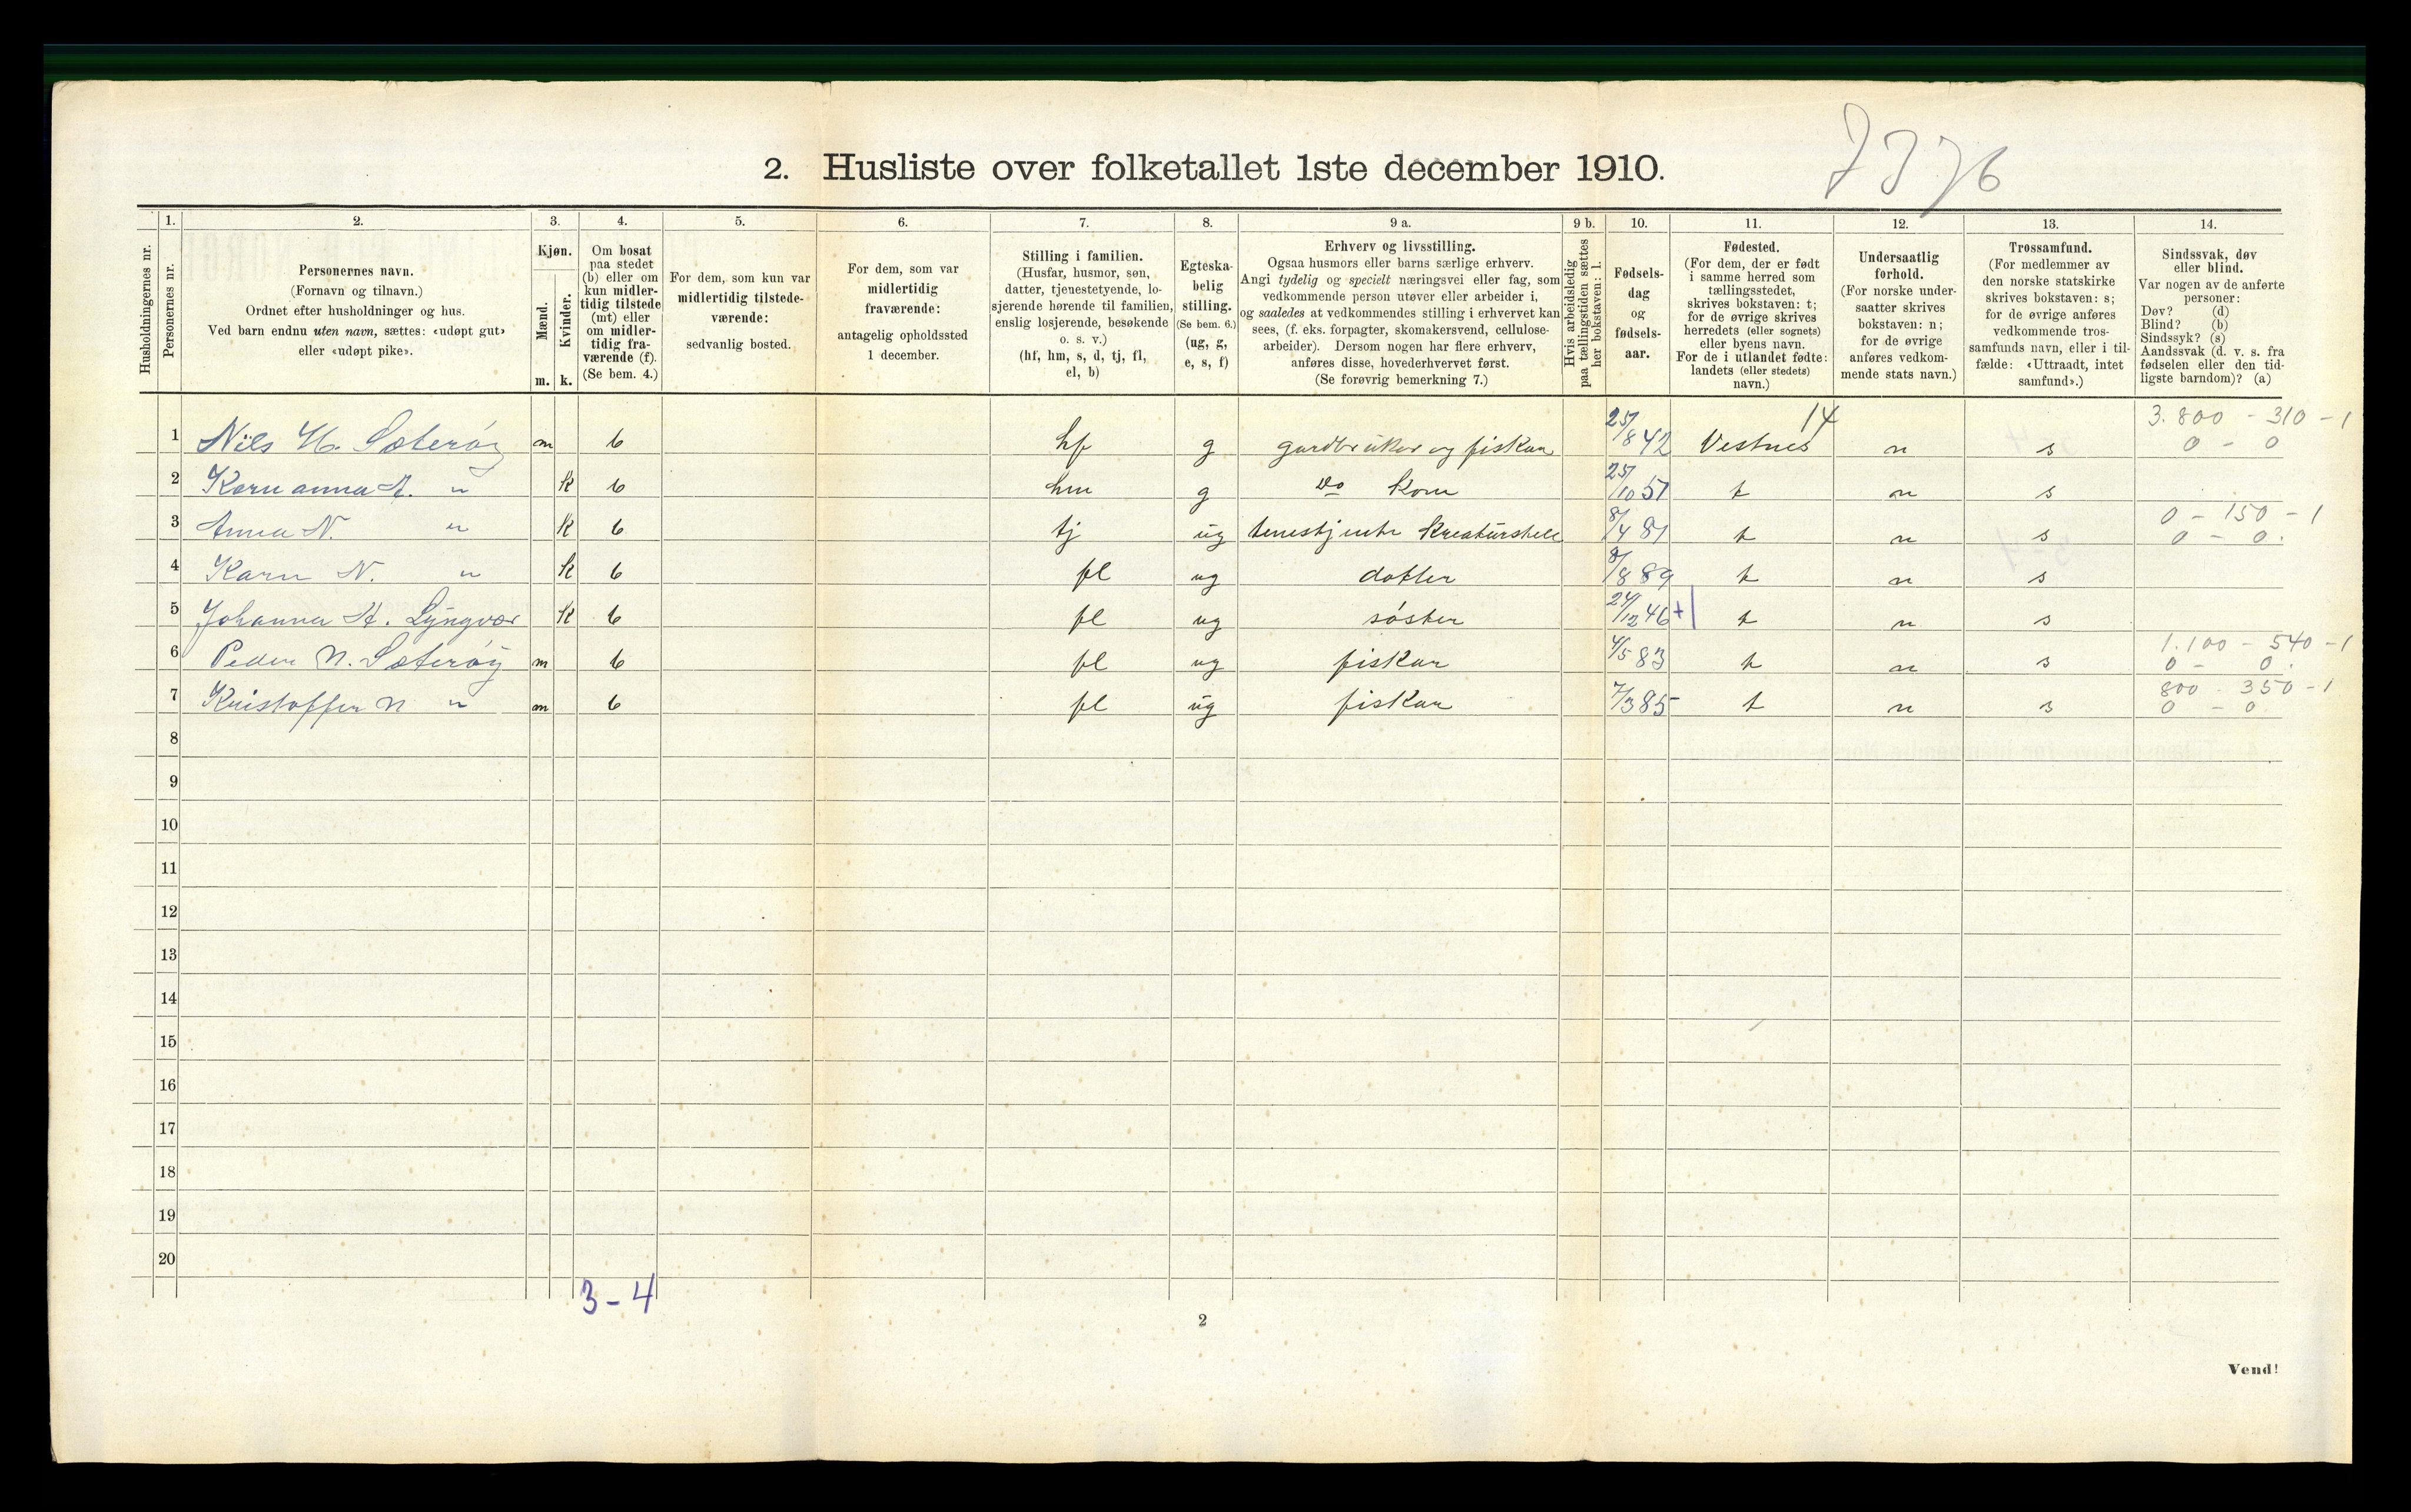 2. Husliste over folketallet 1ste december 1910.
Husholdningernes nr.
1. Personernes nr.
2. Personernes navn. (Fornavn og tilnavn.) Ordnet efter husholdninger og hus. Ved barn endnu uten navn, sættes: «udøpt gut» eller «udøpt pike».
3. Kjøn. Mænd. m. Kvinder. k.
4. Om bosat paa stedet (b) eller om kun midlertidig tilstede (mt) eller om midlertidig fraværende (f). (Se bem. 4.)
5. For dem, som kun var midlertidig tilstedeværende: sedvanlig bosted.
6. For dem, som var midlertidig fraværende: antagelig opholdssted 1 december.
7. Stilling i familien. (Husfar, husmor, søn, datter, tjenestetyende, losjerende hørende til familien, enslig losjerende, besøkende o. s. v.) (hf, hm, s, d, tj, fl, el, b)
8. Egteskabelig stilling. (Se bem. 6.) (ug, g, e, s, f)
9 a. Erhverv og livsstilling. Ogsaa husmors eller barns særlige erhverv. Angi tydelig og specielt næringsvei eller fag, som vedkommende person utøver eller arbeider i, og saaledes at vedkommendes stilling i erhvervet kan sees, (f. eks. forpagter, skomakersvend, cellulosearbeider). Dersom nogen har flere erhverv, anføres disse, hovederhvervet først. (Se forøvrig bemerkning 7.)
9 b. Hvis arbeidsledig paa tællingstiden sættes her bokstaven: l.
10. Fødselsdag og fødselsaar.
11. Fødested. (For dem, der er født i samme herred som tællingsstedet, skrives bokstaven: t; for de øvrige skrives herredets (eller sognets) eller byens navn. For de i utlandet fødte: landets (eller stedets) navn.)
12. Undersaatlig forhold. (For norske undersaatter skrives bokstaven: n; for de øvrige anføres vedkommende stats navn.)
13. Trossamfund. (For medlemmer av den norske statskirke skrives bokstaven: s; for de øvrige anføres vedkommende trossamfunds navn, eller i tilfælde: «Uttraadt, intet samfund».)
14. Sindssvak, døv eller blind. Var nogen av de anførte personer: Døv? (d) Blind? (b) Sindssyk? (s) Aandssvak (d. v. s. fra fødselen eller den tidligste barndom)? (a)
14 3.800 - 310 - 1
1 Nils H. Sæterøy m b hf g gardbruker og fiskar 25/8 42 Vestnes n s 0 - 0
2 Karn anna A. " k b hm g do kone 25/10 51 t n s
0 - 150 - 1
3 Anna N. " k b tj ug tenestjente kreaturstell 8/4 81 t n s 0 - 0.
4 Karn N. " k b fl ug dotter 8/8 89 t n s
5 Johanna A. Lyngvær k b fl ug søster 24/12 46 + t n s
1.100 - 540 - 1
6 Peder N. Sæterøy m b fl ug fiskar 4/5 83 t n s 0 - 0.
800 - 350 - 1
7 Kristoffer N " m b fl ug fiskar 7/3 85 t n s 0 - 0
8
9
10
11
12
13
14
15
16
17
18
19
20
3 - 4
2
Vend!